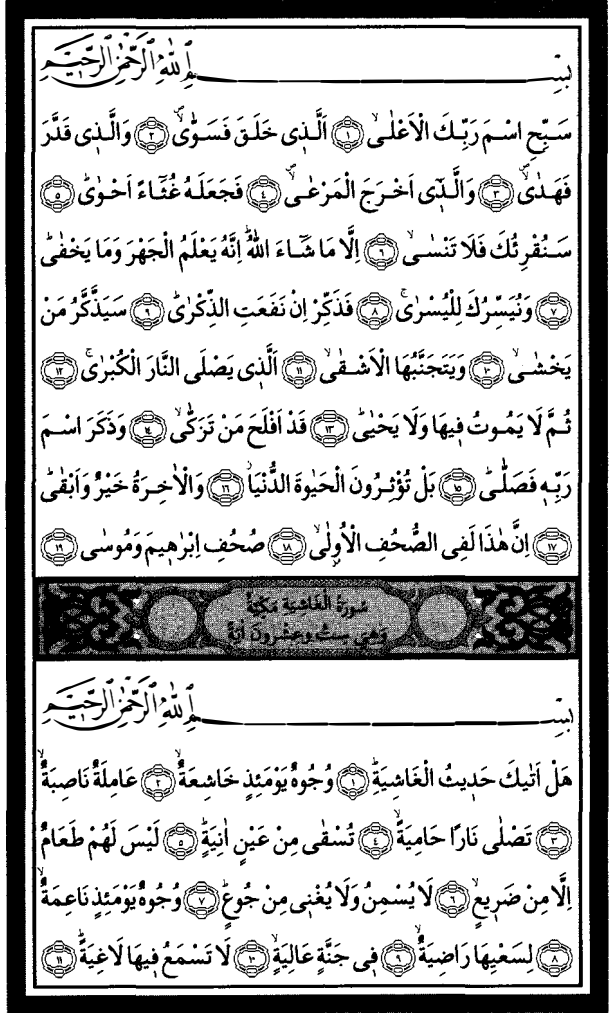 بِسْمِ اللّٰهِ الرَّحْمٰنِ الرَّحِيمِ
سَبِّحِ اسْمَ رَبِّكَ الْاَعْلٰىۙ ﴿١﴾ اَلَّذٖى خَلَقَ فَسَوّٰىۙࣕ ﴿٢﴾ وَالَّذٖى قَدَّرَ
فَهَدٰىۙࣕ ﴿٣﴾ وَالَّذٖٓى اَخْرَجَ الْمَرْعٰىۙࣕ ﴿٤﴾ فَجَعَلَهُ غُثَٓاءً اَحْوٰىؕ ﴿٥﴾
سَنُقْرِئُكَ فَلَا تَنْسٰىۙ ﴿٦﴾ اِلَّا مَا شَٓاءَ اللّٰهُؕ اِنَّهُ يَعْلَمُ الْجَهْرَ وَمَا يَخْفٰىؕ
﴿٧﴾ وَنُيَسِّرُكَ لِلْيُسْرٰىۚ ﴿٨﴾ فَذَكِّرْ اِنْ نَفَعَتِ الذِّكْرٰىؕ ﴿٩﴾ سَيَذَّكَّرُ مَنْ
يَخْشٰىۙ ﴿١٠﴾ وَيَتَجَنَّبُهَا الْاَشْقٰىۙ ﴿١١﴾ اَلَّذٖى يَصْلَى النَّارَ الْكُبْرٰىۚ ﴿١٢﴾
ثُمَّ لَا يَمُوتُ فٖيهَا وَلَا يَحْيٰىؕ ﴿١٣﴾ قَدْ اَفْلَحَ مَنْ تَزَكّٰىۙ ﴿١٤﴾ وَذَكَرَ اسْمَ
رَبِّهٖ فَصَلّٰىؕ ﴿١٥﴾ بَلْ تُؤْثِرُونَ الْحَيٰوةَ الدُّنْيَاۘ ﴿١٦﴾ وَالْاٰخِرَةُ خَيْرٌ وَاَبْقٰىؕ
﴿١٧﴾ اِنَّ هٰذَا لَفِى الصُّحُفِ الْاُولٰىۙ ﴿١٨﴾ صُحُفِ اِبْرٰهٖيمَ وَمُوسٰى ﴿١٩﴾
سُورَةُ الْغَاشِيَةِ مَكِّيَّةٌ
وَهِىَ سِتٌّ وَعِشْرُونَ اٰيَةً
بِسْمِ اللّٰهِ الرَّحْمٰنِ الرَّحِيمِ
هَلْ اَتٰيكَ حَدٖيثُ الْغَاشِيَةِؕ ﴿١﴾ وُجُوهٌ يَوْمَئِذٍ خَاشِعَةٌۙ ﴿٢﴾ عَامِلَةٌ نَاصِبَةٌۙ
﴿٣﴾ تَصْلٰى نَارًا حَامِيَةًۙ ﴿٤﴾ تُسْقٰى مِنْ عَيْنٍ اٰنِيَةٍؕ ﴿٥﴾ لَيْسَ لَهُمْ طَعَامٌ
اِلَّا مِنْ ضَرٖيعٍۙ ﴿٦﴾ لَا يُسْمِنُ وَلَا يُغْنٖى مِنْ جُوعٍؕ ﴿٧﴾ وُجُوهٌ يَوْمَئِذٍ نَاعِمَةٌۙ
﴿٨﴾ لِسَعْيِهَا رَاضِيَةٌۙ ﴿٩﴾ فٖى جَنَّةٍ عَالِيَةٍۙ ﴿١٠﴾ لَا تَسْمَعُ فٖيهَا لَاغِيَةًؕ ﴿١١﴾